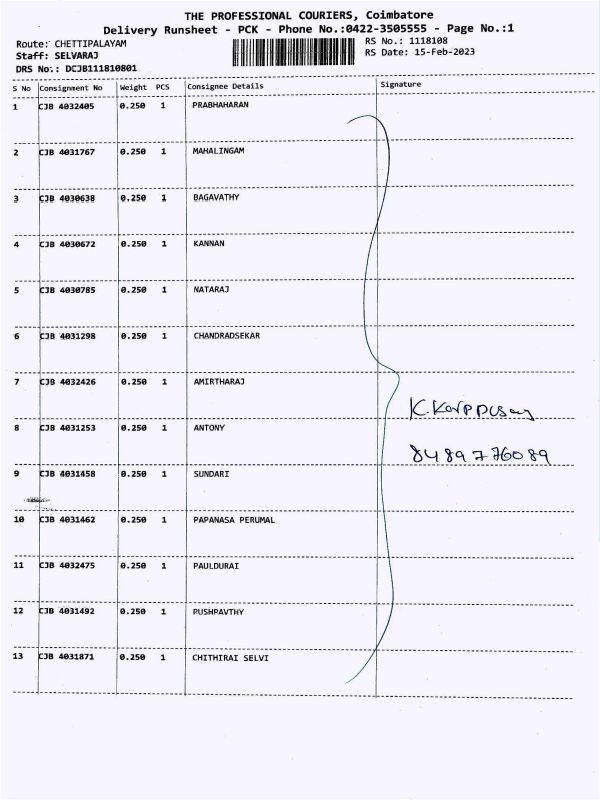 THE PROFESSIONAL COURIERS, Coimbatore
Delivery Runsheet - PCK - Phone No.:0422-3505555 - Page No.:1
Route: CHETTIPALAYAM
Staff: SELVARAJ
DRS No.: DCJB111810801
RS No.: 1118108
RS Date: 15-Feb-2023
S No Consignment No Weight PCS Consignee Details Signature
1 CJB 4032405 0.250 1 PRABHAHARAN
2 CJB 4031767 0.250 1 MAHALINGAM
3 CJB 4030638 0.250 1 BAGAVATHY
4 CJB 4030672 0.250 1 KANNAN
5 CJB 4030785 0.250 1 NATARAJ
6 CJB 4031298 0.250 1 CHANDRADSEKAR
7 CJB 4032426 0.250 1 AMIRTHARAJ
8 CJB 4031253 0.250 1 ANTONY
8489776089
9 CJB 4031458 0.250 1 SUNDARI
10 CJB 4031462 0.250 1 PAPANASA PERUMAL
11 CJB 4032475 0.250 1 PAULDURAI
12 CJB 4031492 0.250 1 PUSHPAVTHY
13 CJB 4031871 0.250 1 CHITHIRAI SELVI